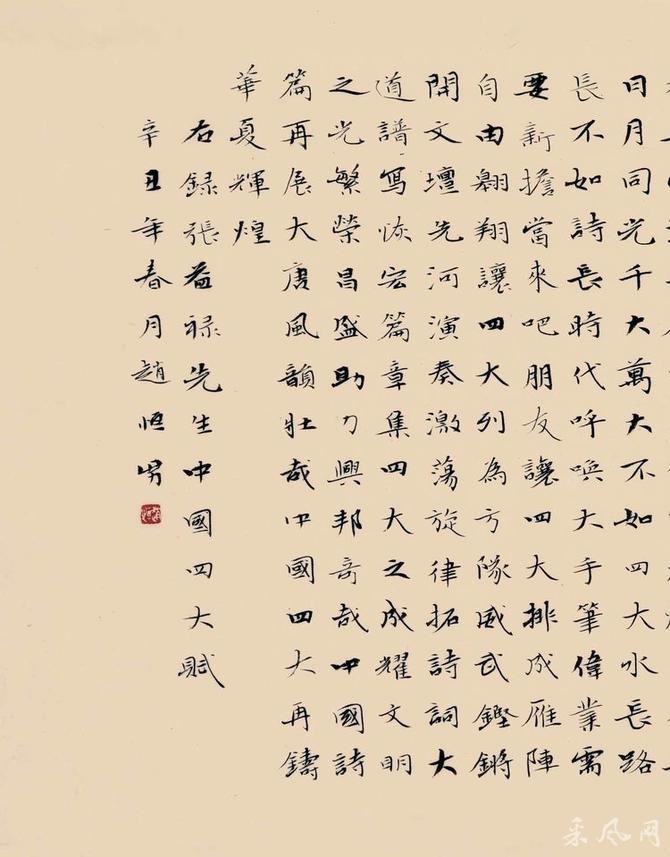 日月同光千大萬大不如四大水長路
長不如詩長時代呼喚大手筆偉業需
要新擔當來吧朋友讓四大排成雁陣
自由翱翔讓四大列為方隊威武鏗鏘
開文壇先河演奏激蕩旋律拓詩詞大
道譜寫恢宏篇章集四大之成耀文明
之光繁榮昌盛助力興邦奇哉中國詩
篇再展大唐風韻壯哉中國四大再鑄
華夏輝煌
右録張益祿先生中國四大賦
辛丑年春月趙恒男
采风网